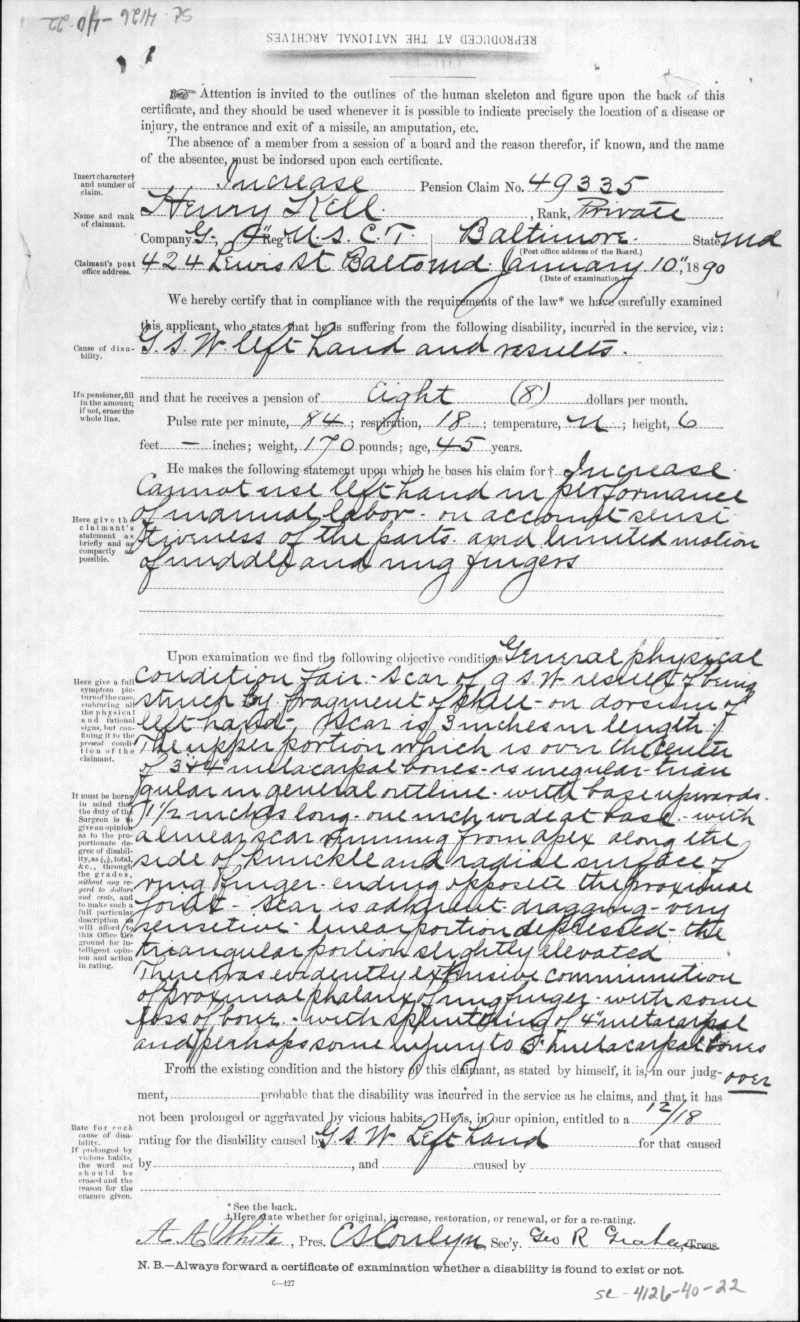 SC 4126-40-22
REPRODUCED AT THE NATIONAL ARCHIVES
Attention is invited to the outlines of the human skeleton and figure upon the back of this
certificate, and they should be used whenever it is possible to indicate precisely the location of a disease or
injury, the entrance and exit of a missile, an amputation, etc.
The absence of a member from a session of a board and the reason therefor, if known, and the name
of the absentee, must be indorsed upon each certificate.
Insert character†
and number of
claim.
Increase Pension Claim No. 49335
Name and rank
of claimant.
Henry Kell, Rank, Private
Company G., 9" Reg't U.S.C.T. Baltimore State, Md
(Post office address of the Board.)
Claimant's post
office address.
424 Lewis St Balto Md. January 10", 1890
(Date of examination.)
We hereby certify that in compliance with the requirements of the law* we have carefully examined
this applicant, who states that he is suffering from the following disability, incurred in the service, viz:
Cause of disa-
bility.
G.S.W. left hand and results.
If a pensioner, fill
in the amount;
if not, erase the
whole line.
and that he receives a pension of Eight (8) dollars per month.
Pulse rate per minute, 84; respiration, 18; temperature, N; height, 6
feet — inches; weight, 170 pounds; age, 45 years.
He makes the following statement upon which he bases his claim for† Increase.
Here give the
claimant's
statement as
briefly and as
compactly as
possible.
Cannot use left hand in performance
of manual labor - on account sensi
tiveness of the parts. and limited motion
of middle and ring fingers
Upon examination we find the following objective conditions: General physical
Here give a full
symptom pic-
ture of the case,
embracing all
the physical
and rational
signs, but con-
fining it to the
present condi-
tion of the
claimant.
condition fair - scar of g.s.w. result of being
struck by fragment of shell - on dorsum of
left hand, Scar is 3 inches in length.
The upper portion which is over the center
of 3 & 4" metacarpal bones - is iregular - trian
gular in general outline - with base upwards.
It must be borne
in mind that
the duty of the
Surgeon is to
give an opinion
as to the pro-
portionate de-
gree of disabil-
ity, as ¼, ½, total,
&c., through
the grades,
without any re-
gard to dollars
and cents, and
to make such a
full particular
description as
will afford to
this Office the
ground for in-
telligent opin-
ion and action
in rating.
1 1/2 inches long - one inch wide at base - with
a linear scar running from apex along the
side of knuckle and radial surface of
ring finger - ending opposite the proximal
joint - Scar is adherent dragging - very
sensitive - linear portion depressed - the
triangular portion slightly elevated
There was evidently extensive comminution
of proximal phalanx of ring finger - with some
loss of bone - with splintering of 4" metacarpal
and perhaps some injury to 3" metacarpal bones
over
From the existing condition and the history of this claimant, as stated by himself, it is, in our judg-
ment, probable that the disability was incurred in the service as he claims, and that it has
not been prolonged or aggravated by vicious habits. He is, in our opinion, entitled to a 12/18
Rate for each
cause of disa-
bility.
If prolonged by
vicious habits,
the word not
should be
erased and the
reason for the
erasure given.
rating for the disability caused by G.S.W. Left hand for that caused
by , and caused by
*See the back.
†Here state whether for original, increase, restoration, or renewal, or for a re-rating.
A A White, Pres. Sec'y. Geo R Graham, Treas.
N. B.—Always forward a certificate of examination whether a disability is found to exist or not.
6—427
SC-4126-40-22